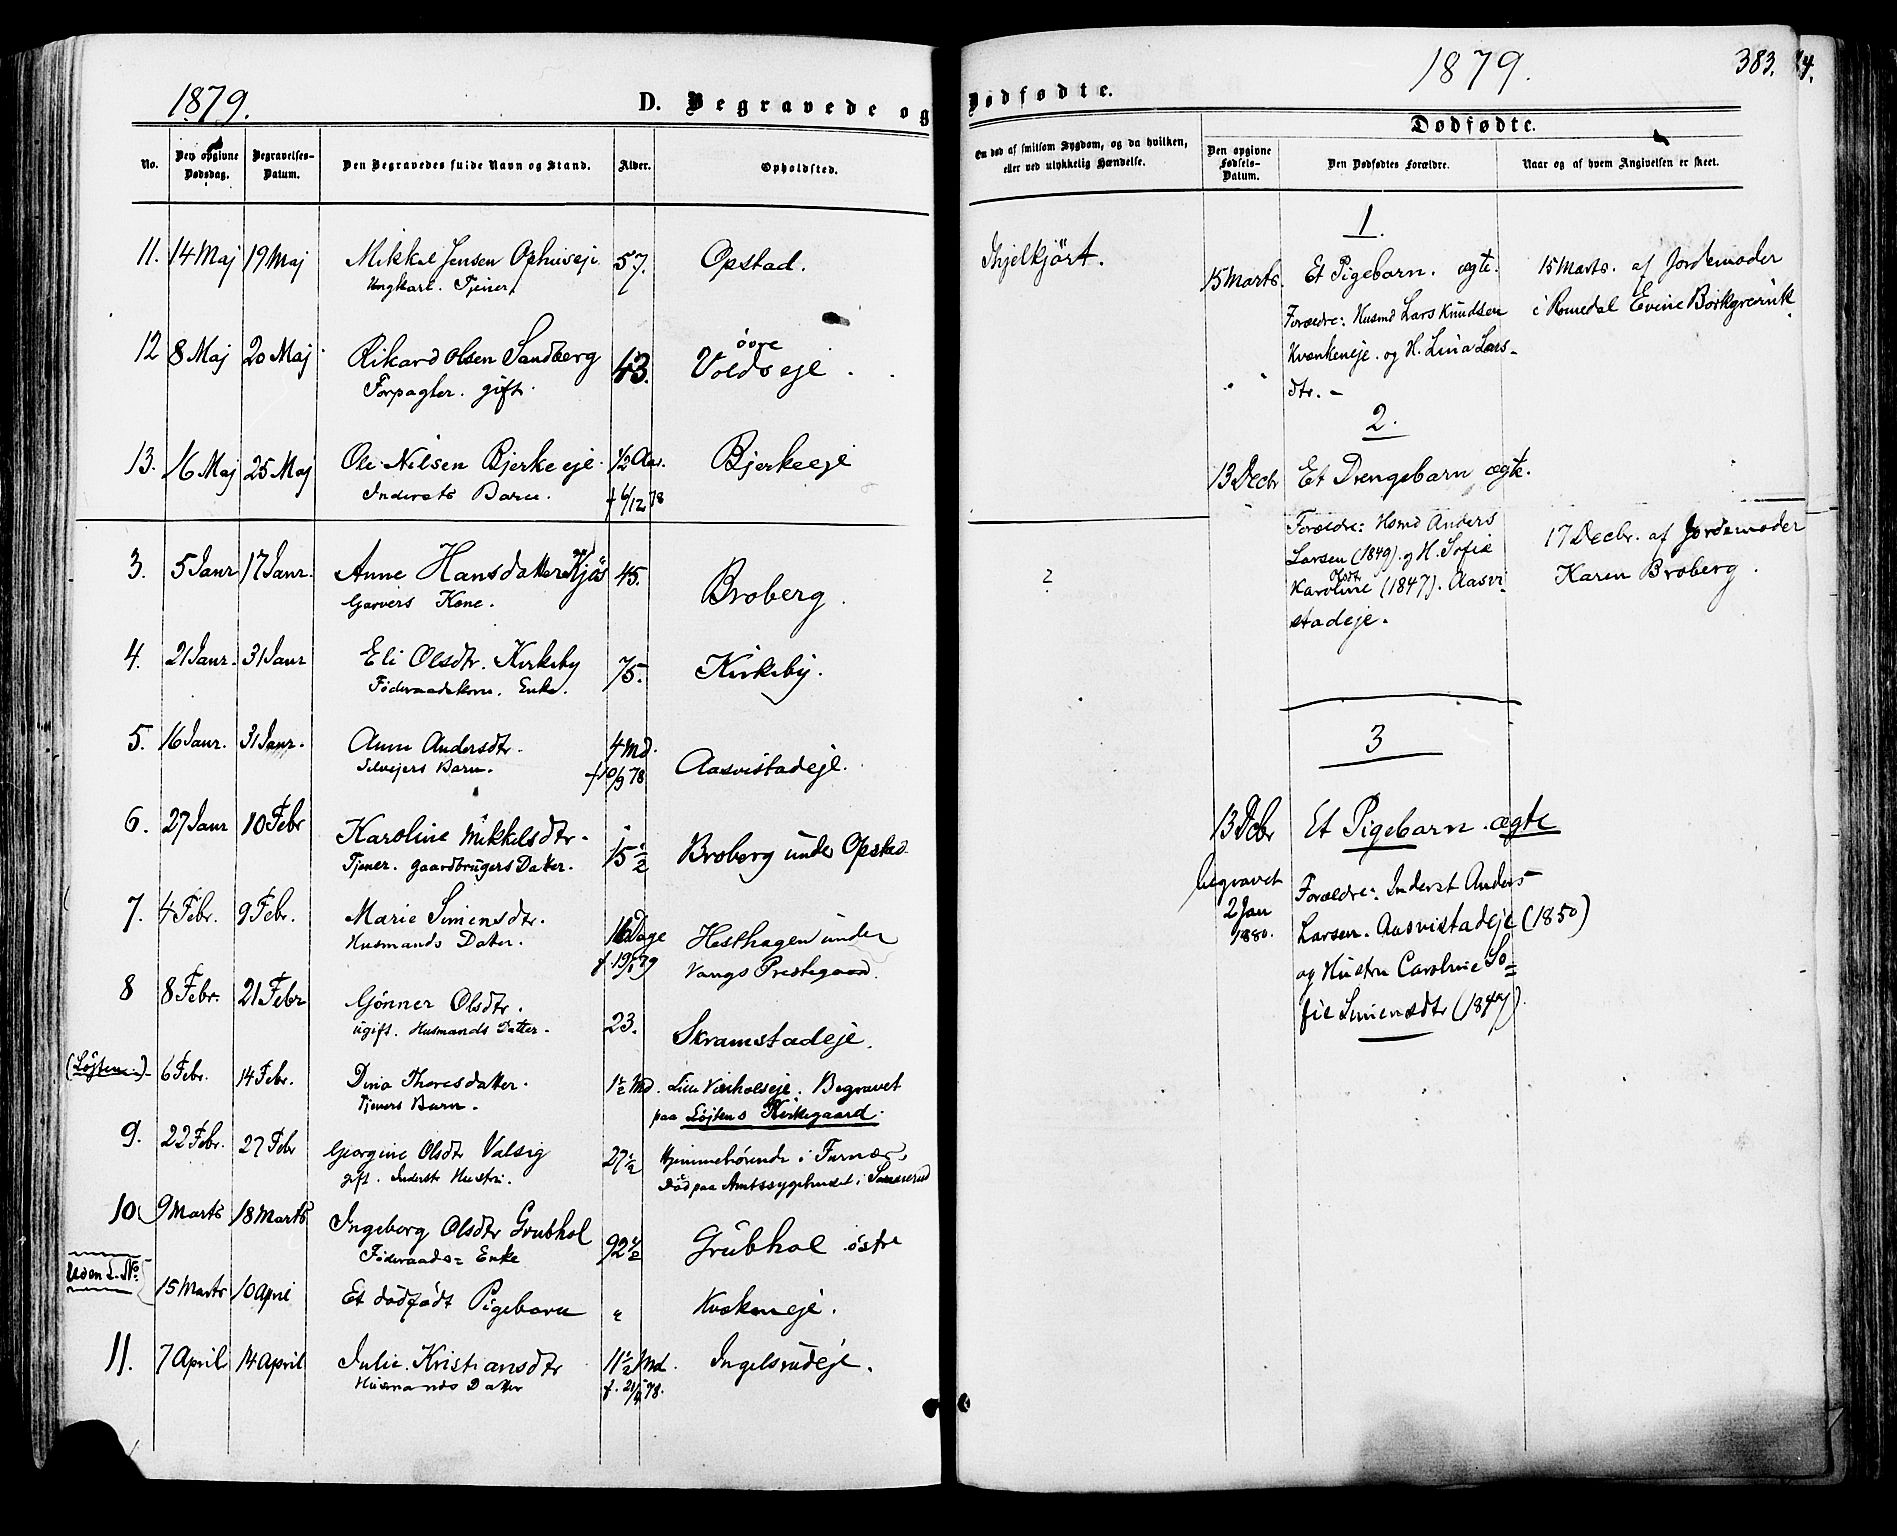 1879.
D. Begravede og
No.
Den opgivne Dødsdag.
Begravelses-Datum.
Den Begravedes fulde Navn og Stand.
Alder.
Opholdsted.
11. 14 Maj 19 Maj Mikkel Jensen Ophuseje 57. Opstad.
Ungkarl. Tjener
12 8 Maj 20 Maj Rikard Olsen Sandberg 43. øvre Voldseje
Forpagter. gift.
13. 16 Maj 25 Maj Ole Nilsen Bjerkeeje 1/2 Aar. Bjerkeeje
Indersts Barn. f 6/12 78
3. 5 Janr 17 Janr. Anne Hansdatter Kjøs 45. Broberg.
Garvers Kone.
4. 21 Janr. 31 Janr Eli Olsdtr. Kirkeby 75. Kirkeby.
Føderaadskone. Enke.
5. 16 Janr. 31 Janr. Anne Andersdtr. 4 Md. Aasvistadeje.
Selvejers Barn. f 10/9 78
6. 27 Janr 10 Febr Karoline Mikkelsdtr. 15 1/2 Broberg under Opstad
Tjener. Gaardbrugers Datter.
7. 4 Febr. 9 Febr. Marie Simensdtr. 16 Dage Hesthagen under
Husmands Datter. f. 19/1 79 Vangs Prestegaard.
8 8 Febr. 21 Febr Gønner Olsdtr. 23. Skramstadeje.
ugift. Husmands Datter.
(Løjten.) 6 Febr. 14 Febr. Dina Thoresdatter. 1 1/2 Md. Lille Viksholseje. Begravet
Tjeners Barn. paa Løjtens Kirkegaard.
9. 22 Febr. 27 Febr Georgine Olsdtr Valsig 27 1/2 Hjemmehørende i Furnæs.
gift. Inderst Hustru. Død paa Amtssygehuset i Sanserud
10 9 Marts 18 Marts Ingeborg Olsdtr Grubhol 92 1/2 Grubhol østre
Føderaads= Enke
Uden L. No 15 Marts 10 April Et dødfødt Pigebarn " Kvækeneje.
11. 7 April 14 April Julie Kristiansdtr 11 1/2 Md. Ingelsrudeje.
Husmands Datter f. 21/4 78.
Dødfødte.
1879.
383.
En død af smitsom Sygdom, og da hvilken,
eller ved ulykkelig Hændelse.
Dødfødte.
Den opgivne Fødsels-Datum.
Den Dødfødtes Forældre.
Naar og af hvem Angivelsen er skeet.
Ihjelkjørt.
1.
15 Marts. Et Pigebarn. ægte. 15 Marts. af Jordemoder
Forældre: Husmd Lars Knudsen i Romedal Evine Borkgrevink
Kvækeneje. og H. Lina Lars-
dtr. -
2.
13 Decbr Et Drengebarn ægte.
Forældre: Husmd Anders 17 Decbr. af Jordemoder
Larsen (1849). og H. Sofie Karen Broberg.
Karoline Olsdtr (1847). Aasvi-
stadeje.
?
3
13 Dcbr Et Pigebarn. ægte
begravet Forældre: Inderst Anders
2 Jan Larsen. Aasvistadeje (1850)
1880. og Hustru Caroline So=
fie Simensdtr (1847).